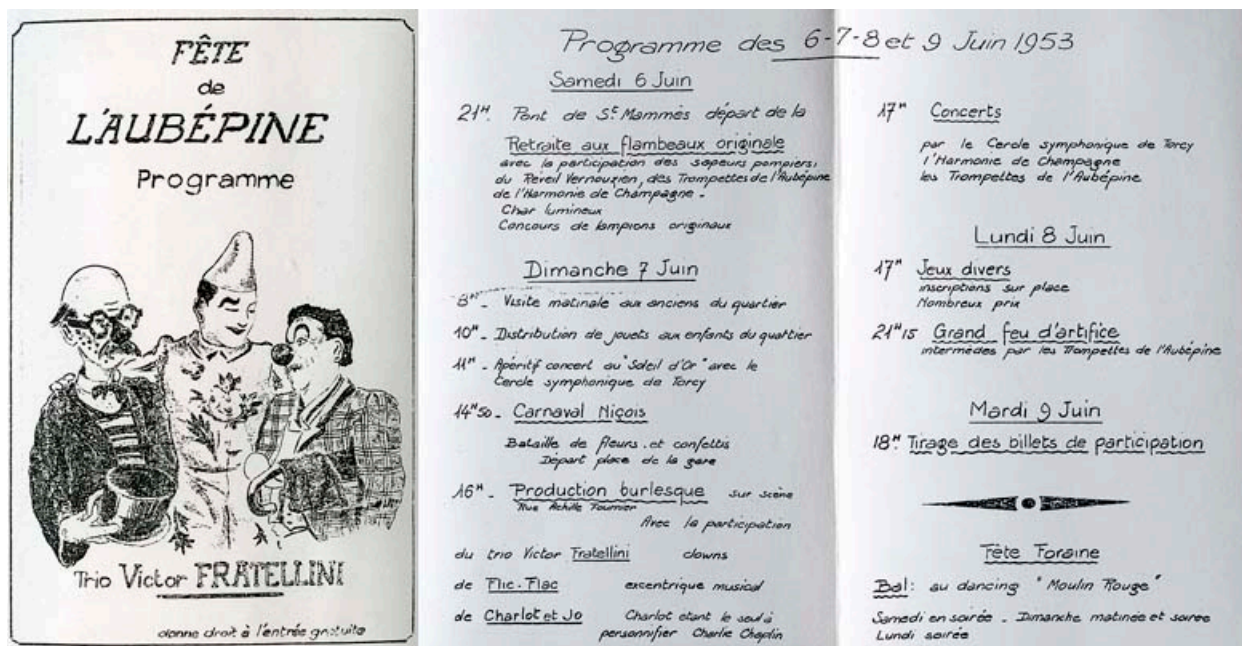 FÊTE
de
L'AUBÉPINE
Programme
Trio Victor FRATELLINI
donne droit à l'entrée gratuite
Programme des 6-7-8 et 9 Juin 1953
Samedi 6 Juin
21H. Pont de St Mammès départ de la
Retraite aux flambeaux originale
avec la participation des sapeurs pompiers,
du Réveil Vernouzien, des Trompettes de l'Aubépine
de l'Harmonie de Champagne.
Char lumineux
Concours de lampions originaux
Dimanche 7 Juin
8H - Visite matinale aux anciens du quartier
10H - Distribution de jouets aux enfants du quartier
11H - Apéritif concert au "Soleil d'Or" avec le
Cercle symphonique de Torcy
14H50 - Carnaval Niçois
Bataille de fleurs et confettis
Départ place de la gare
16H - Production burlesque sur scène
Rue Achille Fournier
Avec la participation
du trio Victor Fratellini clowns
de Flic-Flac excentrique musical
de Charlot et Jo Charlot étant le seul à
personnifier Charlie Chaplin
17H Concerts
par le Cercle symphonique de Torcy
l'Harmonie de Champagne
les Trompettes de l'Aubépine
Lundi 8 Juin
17H Jeux divers
inscriptions sur place
Nombreux prix
21H15 Grand feu d'artifice
intermèdes par les Trompettes de l'Aubépine
Mardi 9 Juin
18H. Tirage des billets de participation
Fête Foraine
Bal: au dancing "Moulin Rouge"
Samedi en soirée - Dimanche matinée et soirée
Lundi soirée